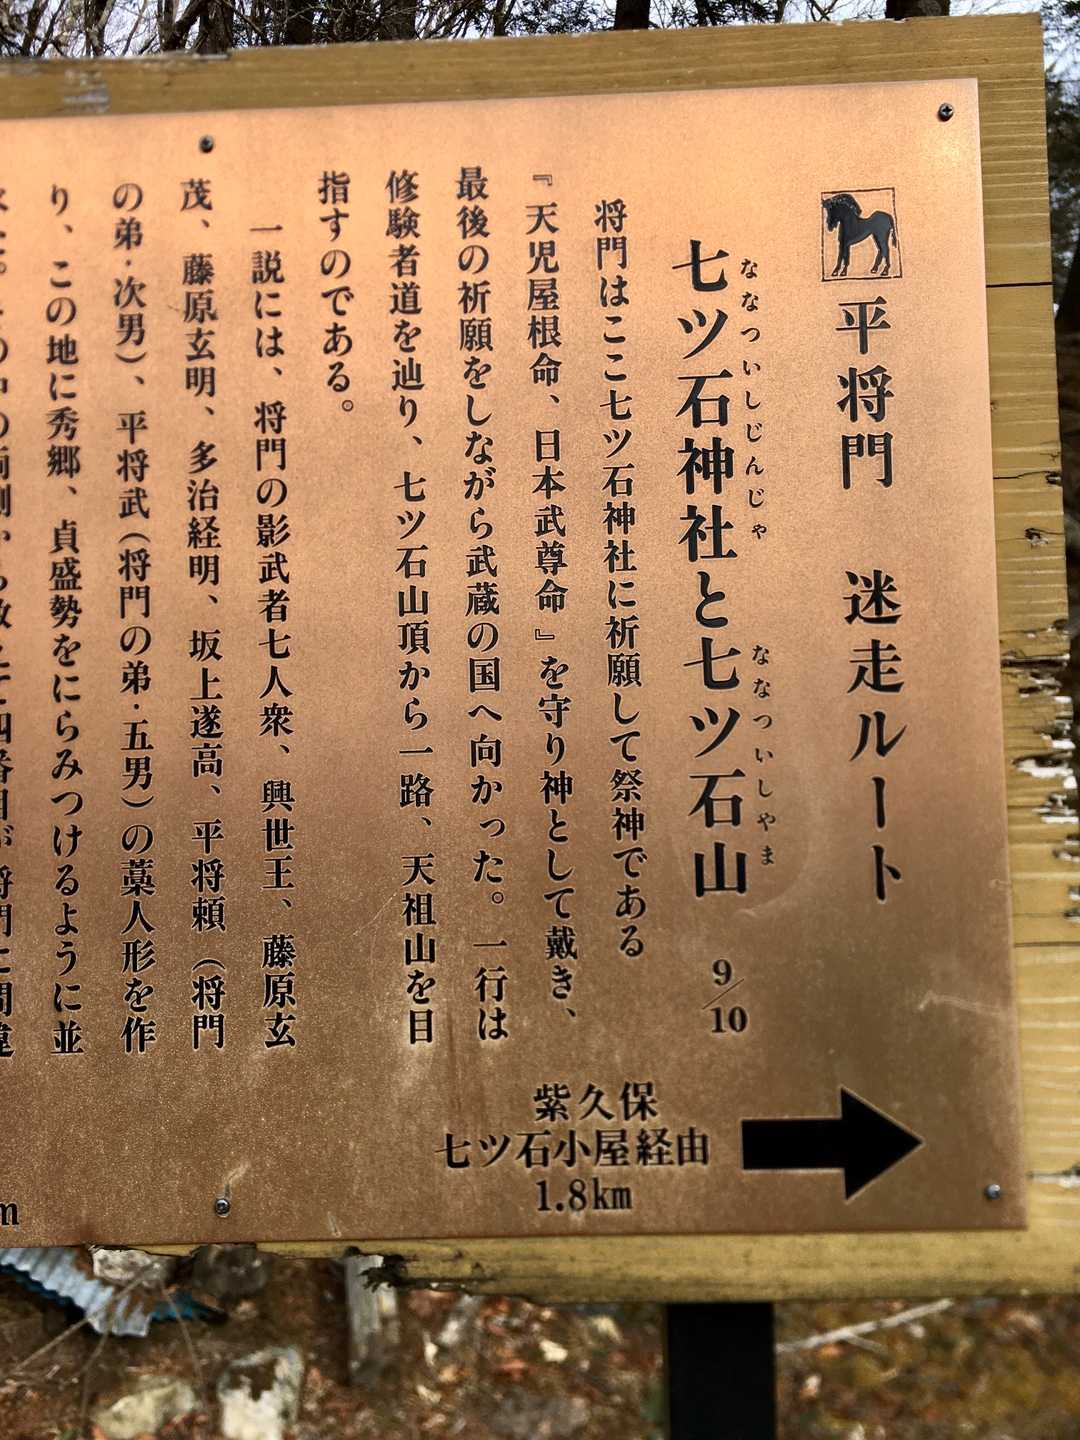 平将門　迷走ルート
七ツ石神社と七ツ石山 9/10
なないついしじんじゃ
ななついしやま
将門はここ七ツ石神社に祈願して祭神である
『天児屋根命、日本武尊命』を守り神として戴き、
最後の祈願をしながら武蔵の国へ向かった。一行は
修験者道を辿り、七ツ石山頂から一路、天祖山を目
指すのである。
一説には、将門の影武者七人衆、興世王、藤原玄
茂、藤原玄明、多治経明、坂上遂高、平将頼（将門
の弟・次男）、平将武（将門の弟・五男）の藁人形を作
り、この地に秀郷、貞盛勢をにらみつけるように並
紫久保
七ツ石小屋経由
1.8km